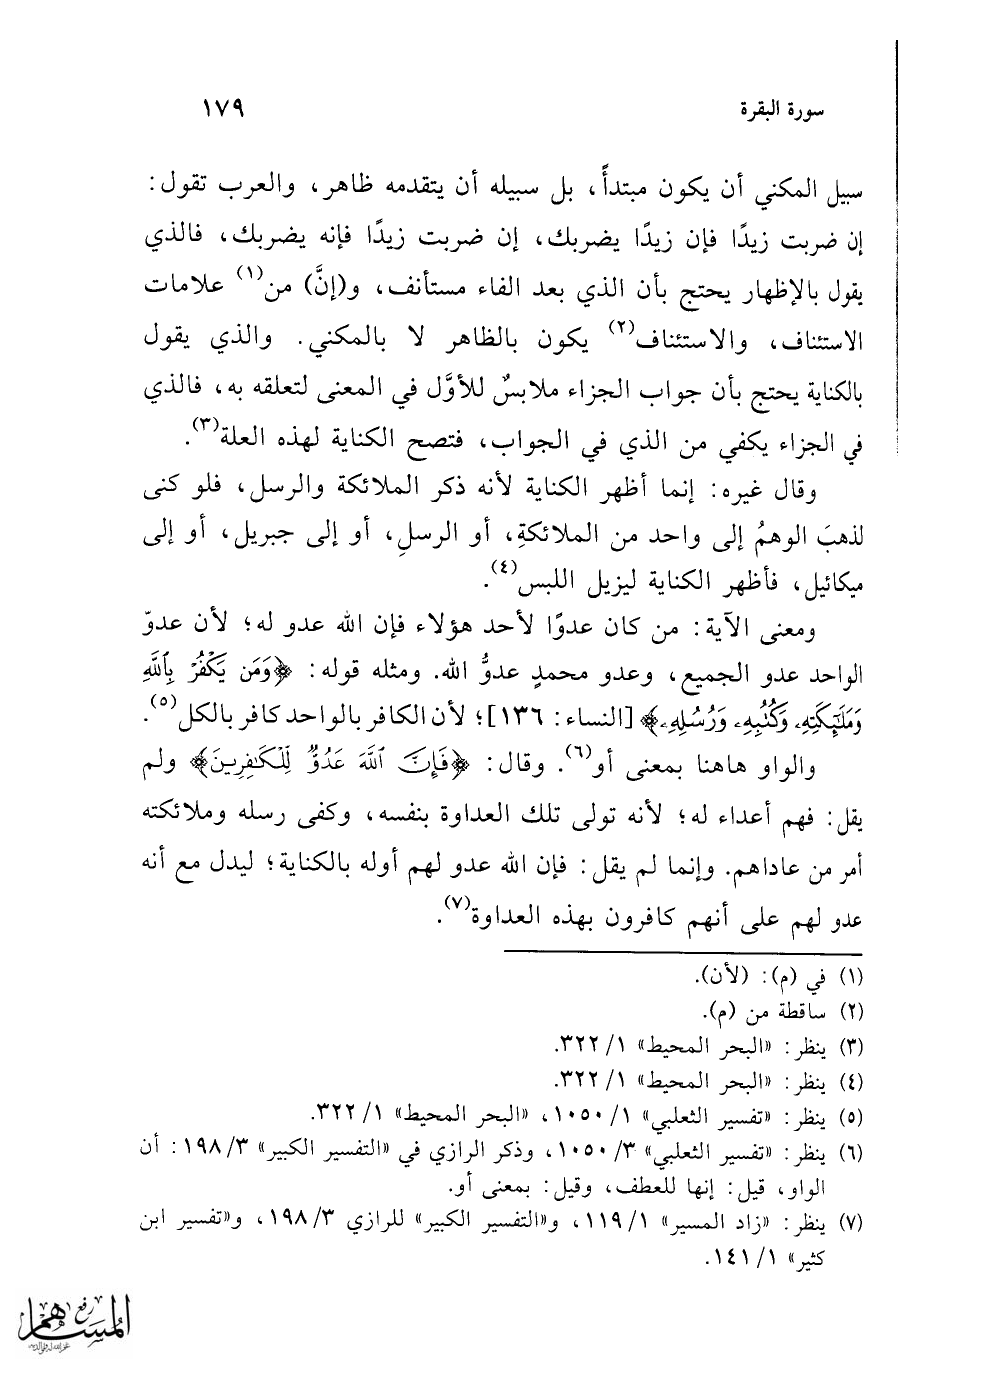 سورة البقرة ١٧٩
سبيل المكني أن يكون مبتدأً، بل سبيله أن يتقدمه ظاهر، والعرب تقول:
إن ضربت زيدًا فإن زيدًا يضربك، إن ضربت زيدًا فإنه يضربك، فالذي
يقول بالإظهار يحتج بأن الذي بعد الفاء مستأنف، و(إنَّ) من(١) علامات
الاستئناف، والاستئناف(٢) يكون بالظاهر لا بالمكني. والذي يقول
بالكناية يحتج بأن جواب الجزاء ملابسٌ للأوَّل في المعنى لتعلقه به، فالذي
في الجزاء يكفي من الذي في الجواب، فتصح الكناية لهذه العلة(٣).
وقال غيره: إنما أظهر الكناية لأنه ذكر الملائكة والرسل، فلو كنى
لذهبَ الوهمُ إلى واحد من الملائكةِ، أو الرسلِ، أو إلى جبريل، أو إلى
ميكائيل، فأظهر الكناية ليزيل اللبس(٤).
ومعنى الآية: من كان عدوًا لأحد هؤلاء فإن الله عدو له؛ لأن عدوّ
الواحد عدو الجميع، وعدو محمدٍ عدوُّ الله. ومثله قوله: ﴿وَمَن يَكْفُرْ بِٱللَّهِ
وَمَلَٰٓئِكَتِهِۦ وَكُتُبِهِۦ وَرُسُلِهِۦ﴾ [النساء: ١٣٦]؛ لأن الكافر بالواحد كافر بالكل(٥).
والواو هاهنا بمعنى أو(٦). وقال: ﴿فَإِنَّ ٱللَّهَ عَدُوٌّ لِّلْكَٰفِرِينَ﴾ ولم
يقل: فهم أعداء له؛ لأنه تولى تلك العداوة بنفسه، وكفى رسله وملائكته
أمر من عاداهم. وإنما لم يقل: فإن الله عدو لهم أوله بالكناية؛ ليدل مع أنه
عدو لهم على أنهم كافرون بهذه العداوة(٧).
(١) في (م): (لأن).
(٢) ساقطة من (م).
(٣) ينظر: «البحر المحيط» ١/ ٣٢٢.
(٤) ينظر: «البحر المحيط» ١/ ٣٢٢.
(٥) ينظر: «تفسير الثعلبي» ١/ ١٠٥٠، «البحر المحيط» ١/ ٣٢٢.
(٦) ينظر: «تفسير الثعلبي» ٣/ ١٠٥٠، وذكر الرازي في «التفسير الكبير» ٣/ ١٩٨: أن
الواو، قيل: إنها للعطف، وقيل: بمعنى أو.
(٧) ينظر: «زاد المسير» ١/ ١١٩، و«التفسير الكبير» للرازي ٣/ ١٩٨، و«تفسير ابن
كثير» ١/ ١٤١.
رفع
المساهم